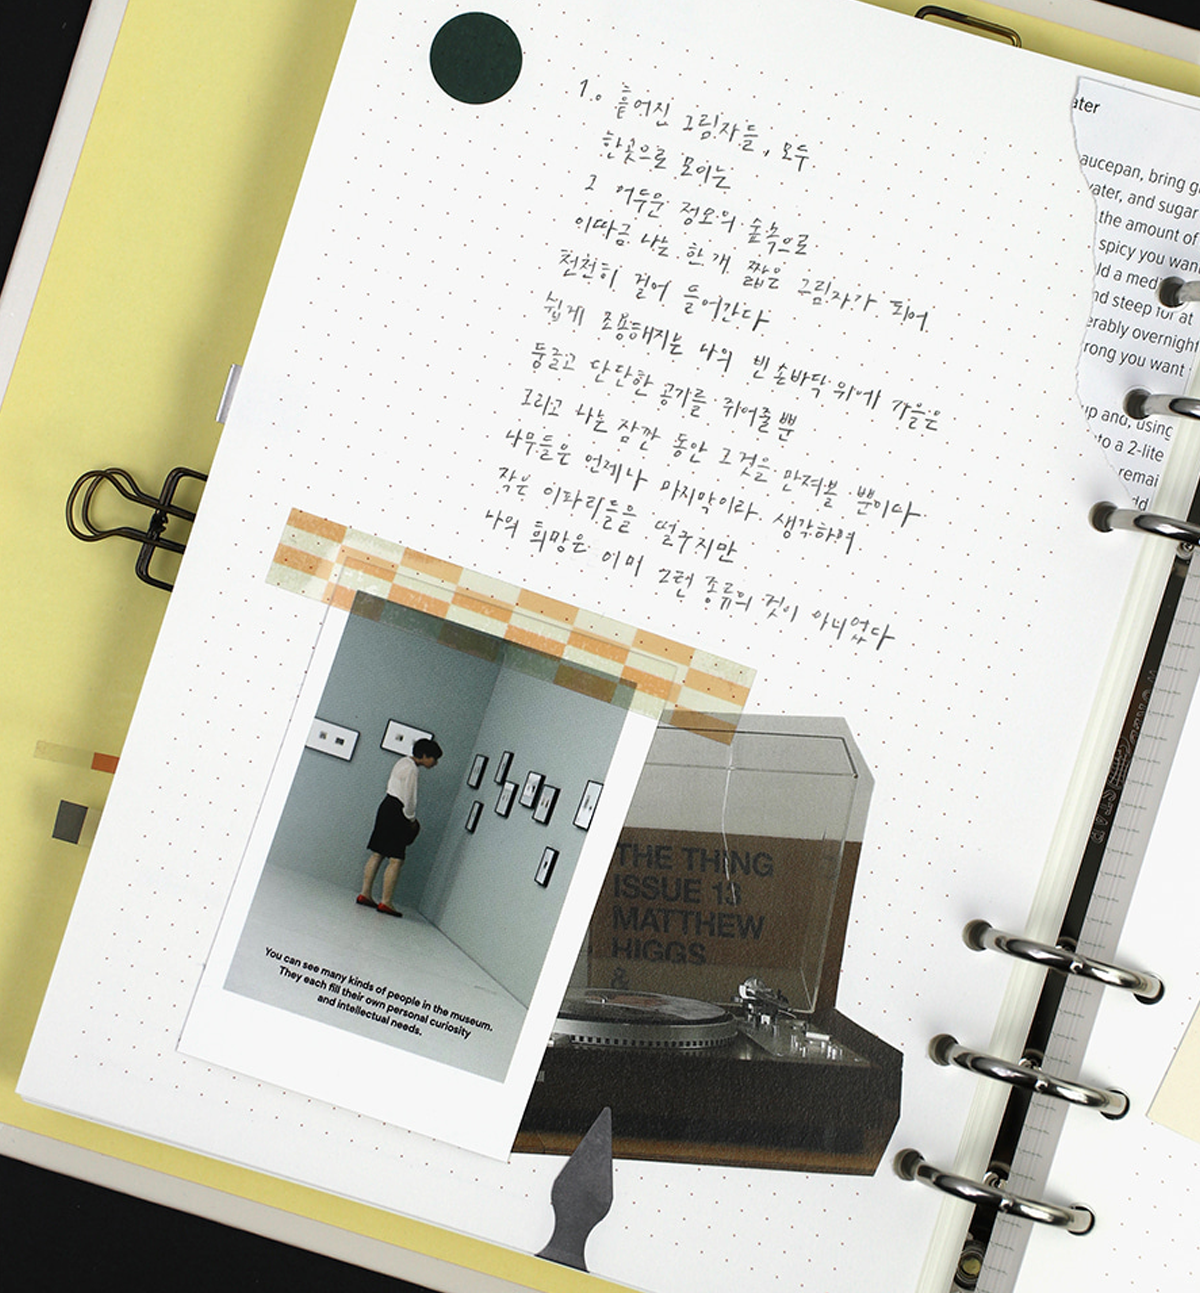 1. 흩어진 그림자들, 모두
한곳으로 모이는
그 어두운 정오의 숲속으로
이따금 나는 한 개 짧은 그림자가 되어
천천히 걸어 들어간다
쉽게 조용해지는 나의 빈 손바닥 위에 가을은
둥글고 단단한 공기를 쥐어줄 뿐
그리고 나는 잠깐 동안 그것을 만져볼 뿐이다
나무들은 언제나 마지막이라 생각하며
작은 이파리들을 떨구지만
나의 희망은 이미 그런 종류의 것이 아니었다
You can see many kinds of people in the museum.
They each fill their own personal curiosity
and intellectual needs.
THE THING
ISSUE 13
MATTHEW
HIGGS
&
ater
aucepan, bring
ater, and sugar
the amount of
spicy you wan
ld a med
nd steep for at
erably overnight
rong you want
up and, using
to a 2-lite
remai